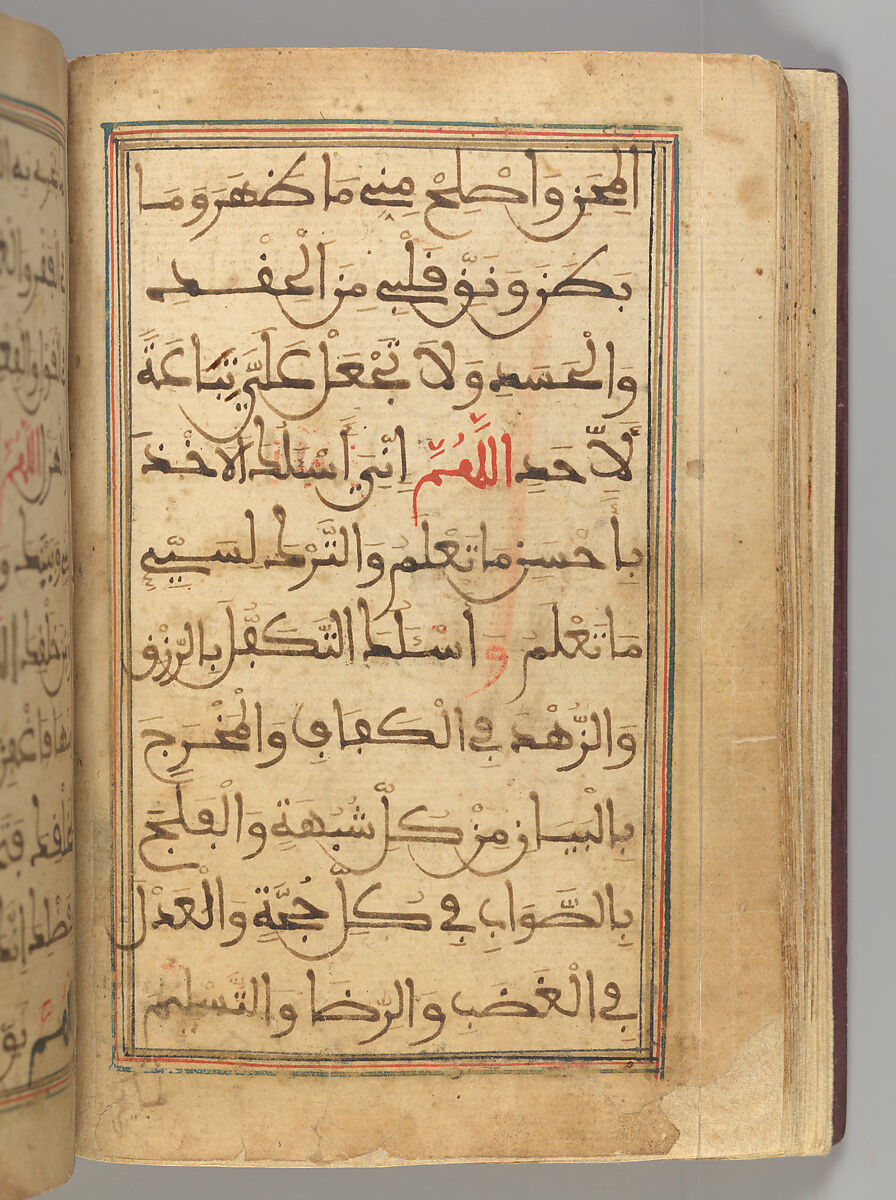 الْمِحَنِ وَأَصْلِحْ مِنِّي مَا ظَهَرَ وَمَا
بَطَنَ وَنَقِّ قَلْبِي مِنَ الْحِقْدِ
وَالْحَسَدِ وَلَا تَجْعَلْ عَلَيَّ تِبَاعَةً
لِأَحَدٍ اللَّهُمَّ إِنِّي أَسْأَلُكَ الْأَخْذَ
بِأَحْسَنِ مَا تَعْلَمُ وَالتَّرْكَ لِسَيِّئِ
مَا تَعْلَمُ وَأَسْأَلُكَ التَّكَفُّلَ بِالرِّزْقِ
وَالزُّهْدَ فِي الْكَفَافِ وَالْمَخْرَجَ
بِالْبَيَانِ مِنْ كُلِّ شُبْهَةٍ وَالْفَلَجَ
بِالصَّوَابِ فِي كُلِّ حُجَّةٍ وَالْعَدْلَ
فِي الْغَضَبِ وَالرِّضَا وَالتَّسْلِيمَ